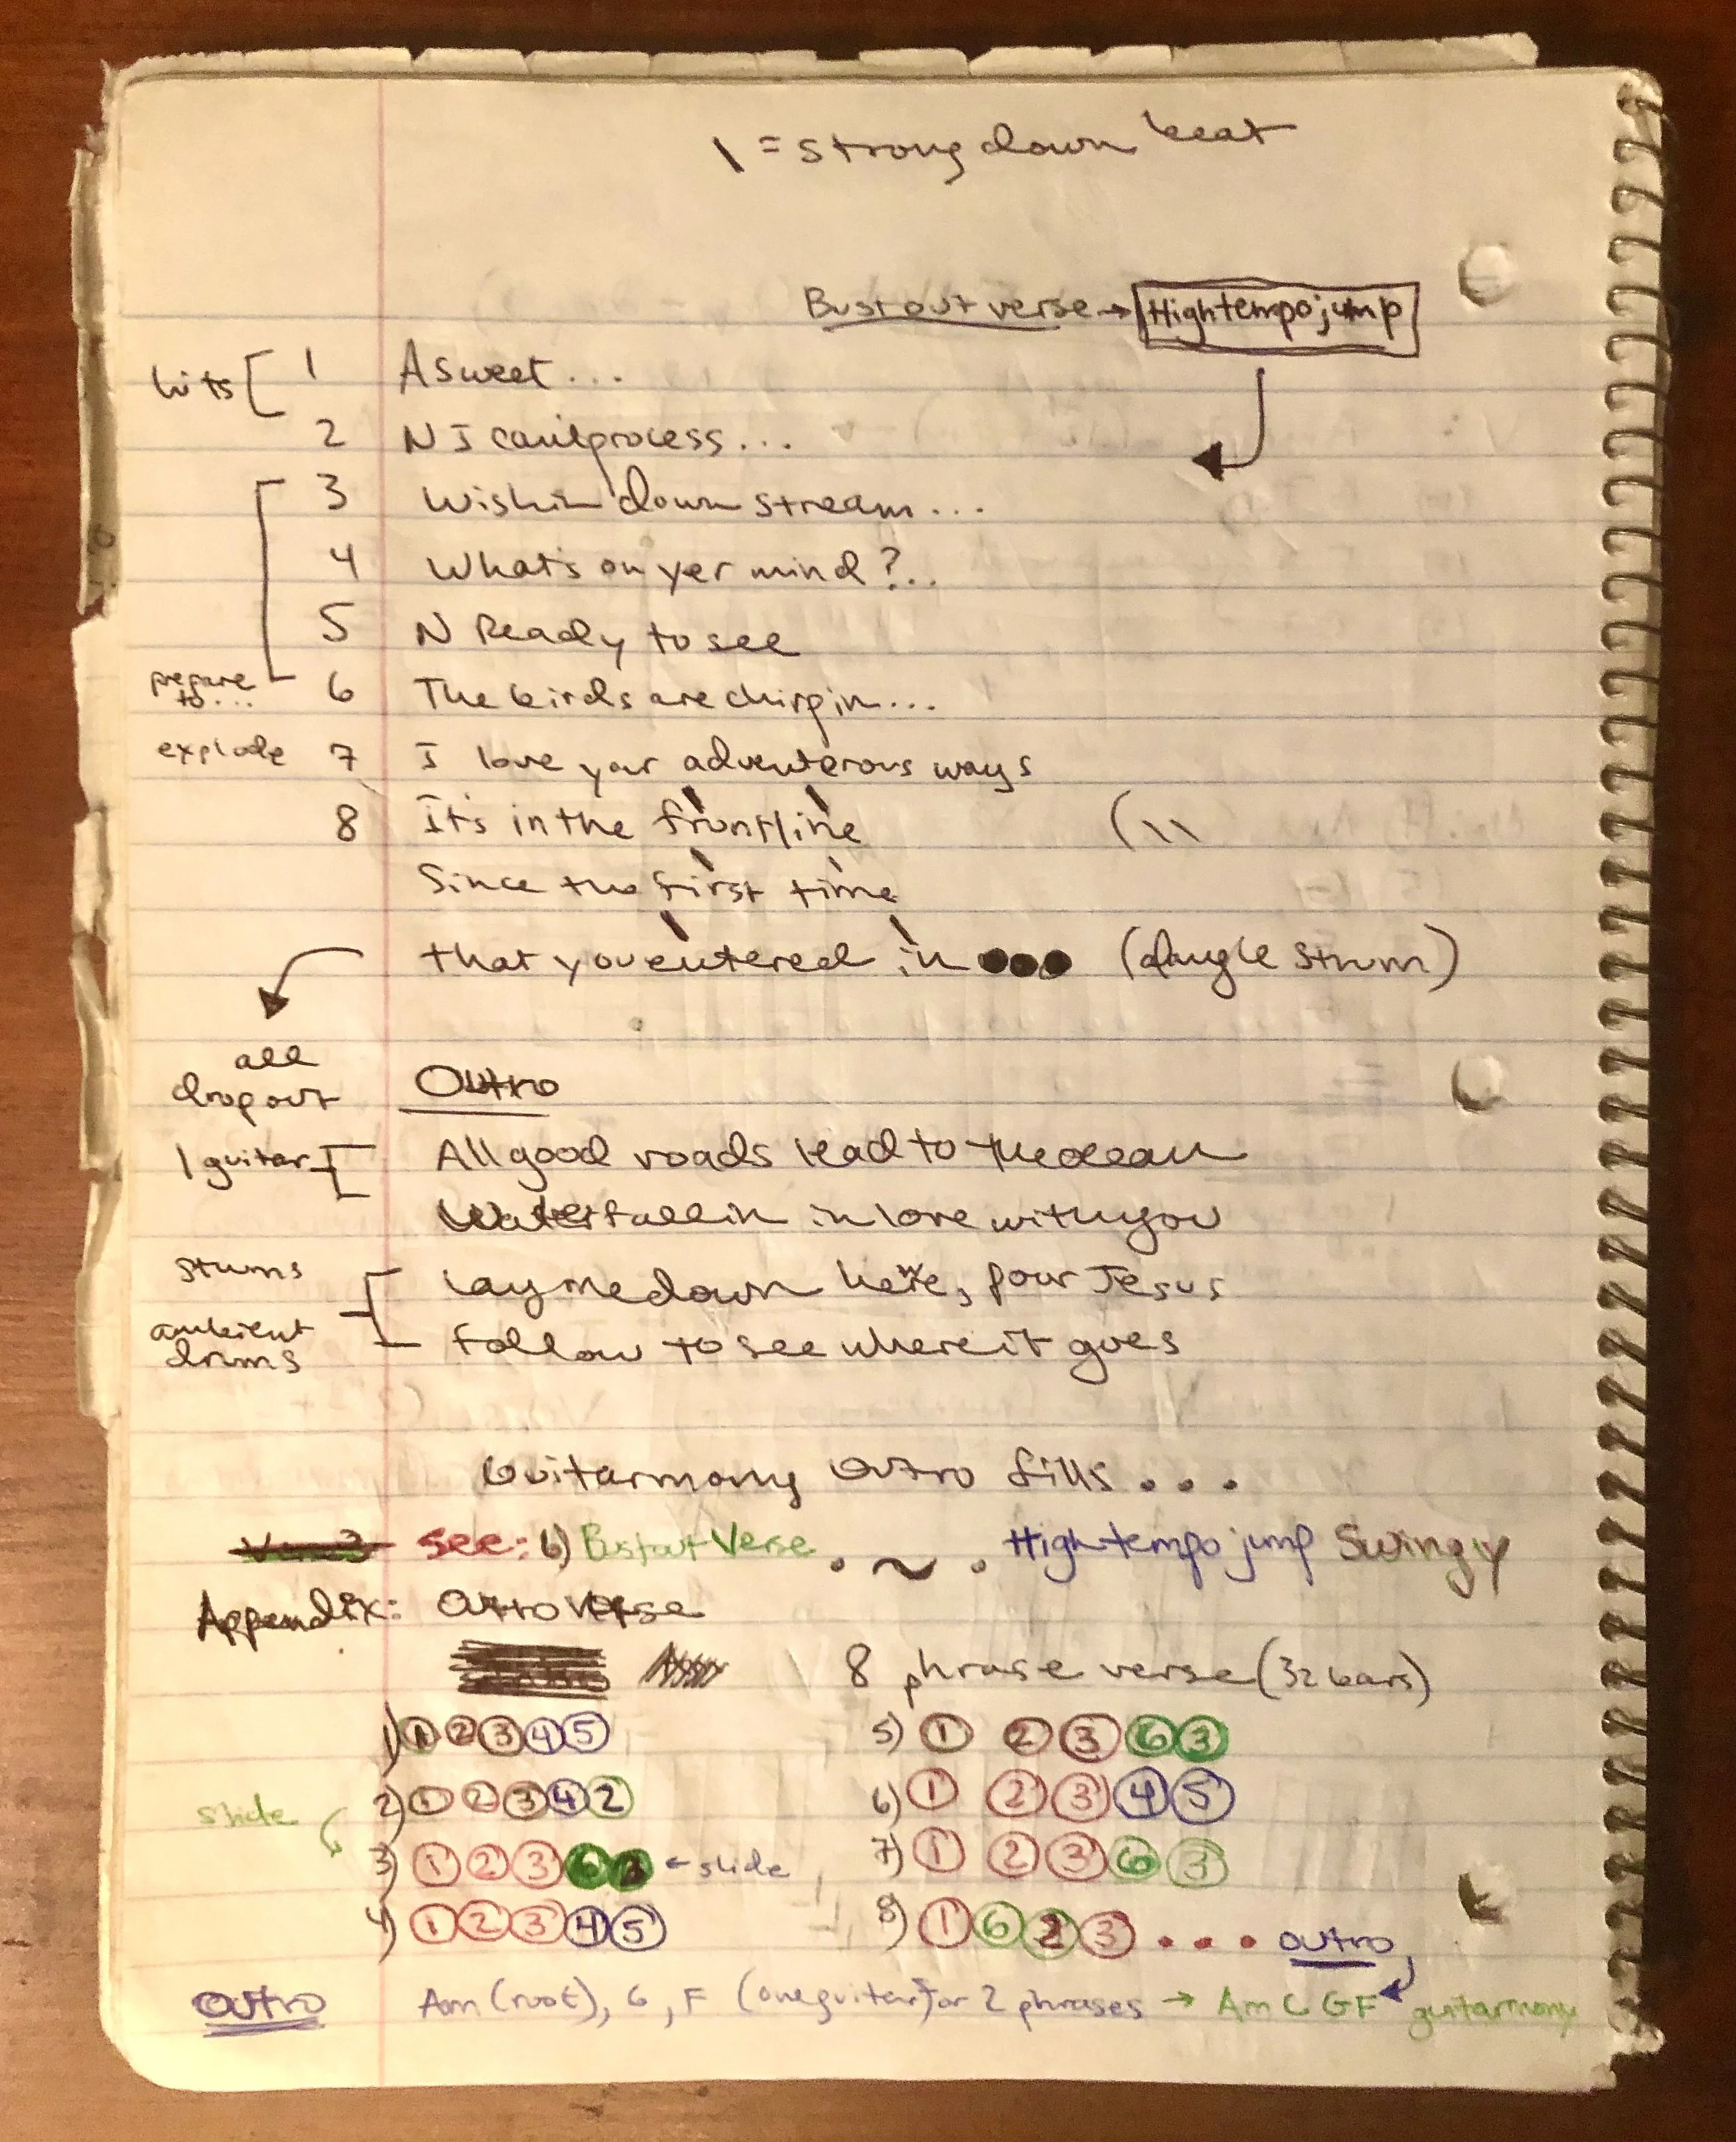 \ = strong down beat
Bust out verse → High tempo jump
hits [ 1 A sweet...
2 N I can't process...
3 Wishin down stream...
4 What's on yer mind?..
5 N Ready to see
prepare to... 6 The birds are chirpin...
explode 7 I love your adventerous ways
8 It's in the frontline ( \ \
Since the first time
that you entered in ●●● (dangle strum)
all
dropout Outro
1 guitar [ All good roads lead to the ocean
Waterfallin in love with you
strums [ Lay me down here, pour Jesus
ambient drums Follow to see where it goes
Guitarmony Outro fills...
see: 6) Bust out Verse . ~ . High tempo jump Swingy
Appendix: Outro Verse
8 phrase verse (32 bars)
1) 1 2 3 4 5 5) 1 2 3 6 3
2) 1 2 3 4 2 6) 1 2 3 4 5
slide 3) 1 2 3 6 3 ← slide 7) 1 2 3 6 3
4) 1 2 3 4 5 8) 1 6 2 3 ... outro
Outro Am (root), G, F (one guitar) for 2 phrases → Am C G F guitarmony